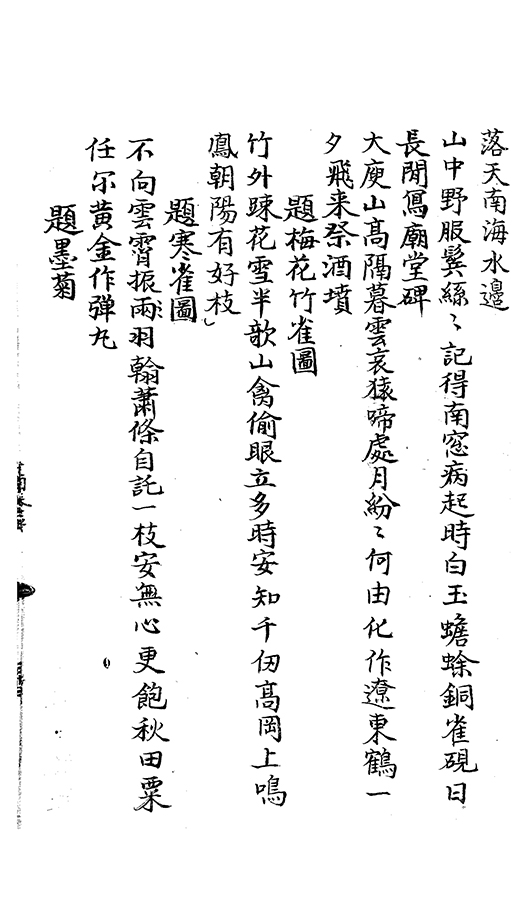 落天南海水邊
山中野服鬂絲〻記得南窓病起時白玉蟾蜍銅雀硯日
長閒寫廟堂碑
大庾山髙隔暮雲哀猿啼處月紛〻何由化作遼東鶴一
夕飛来祭酒墳
題梅花竹雀圖
竹外踈花雪半欹山禽偷眼立多時安知千仞髙岡上鳴
鳳朝陽有好枝
題寒雀圖
不向雲霄振兩羽翰蕭條自託一枝安無心更飽秋田粟
任尔黄金作弹丸
題墨菊